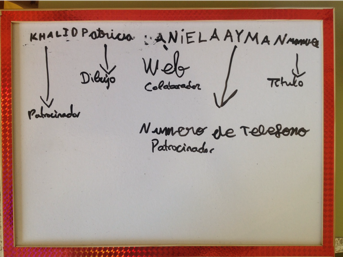 KHALID Patricia DANIELA AYMAN Manuel
Web
Dibujo
Colaborador
Título
Patrocinador
Numero de Telefono
Patrocinador